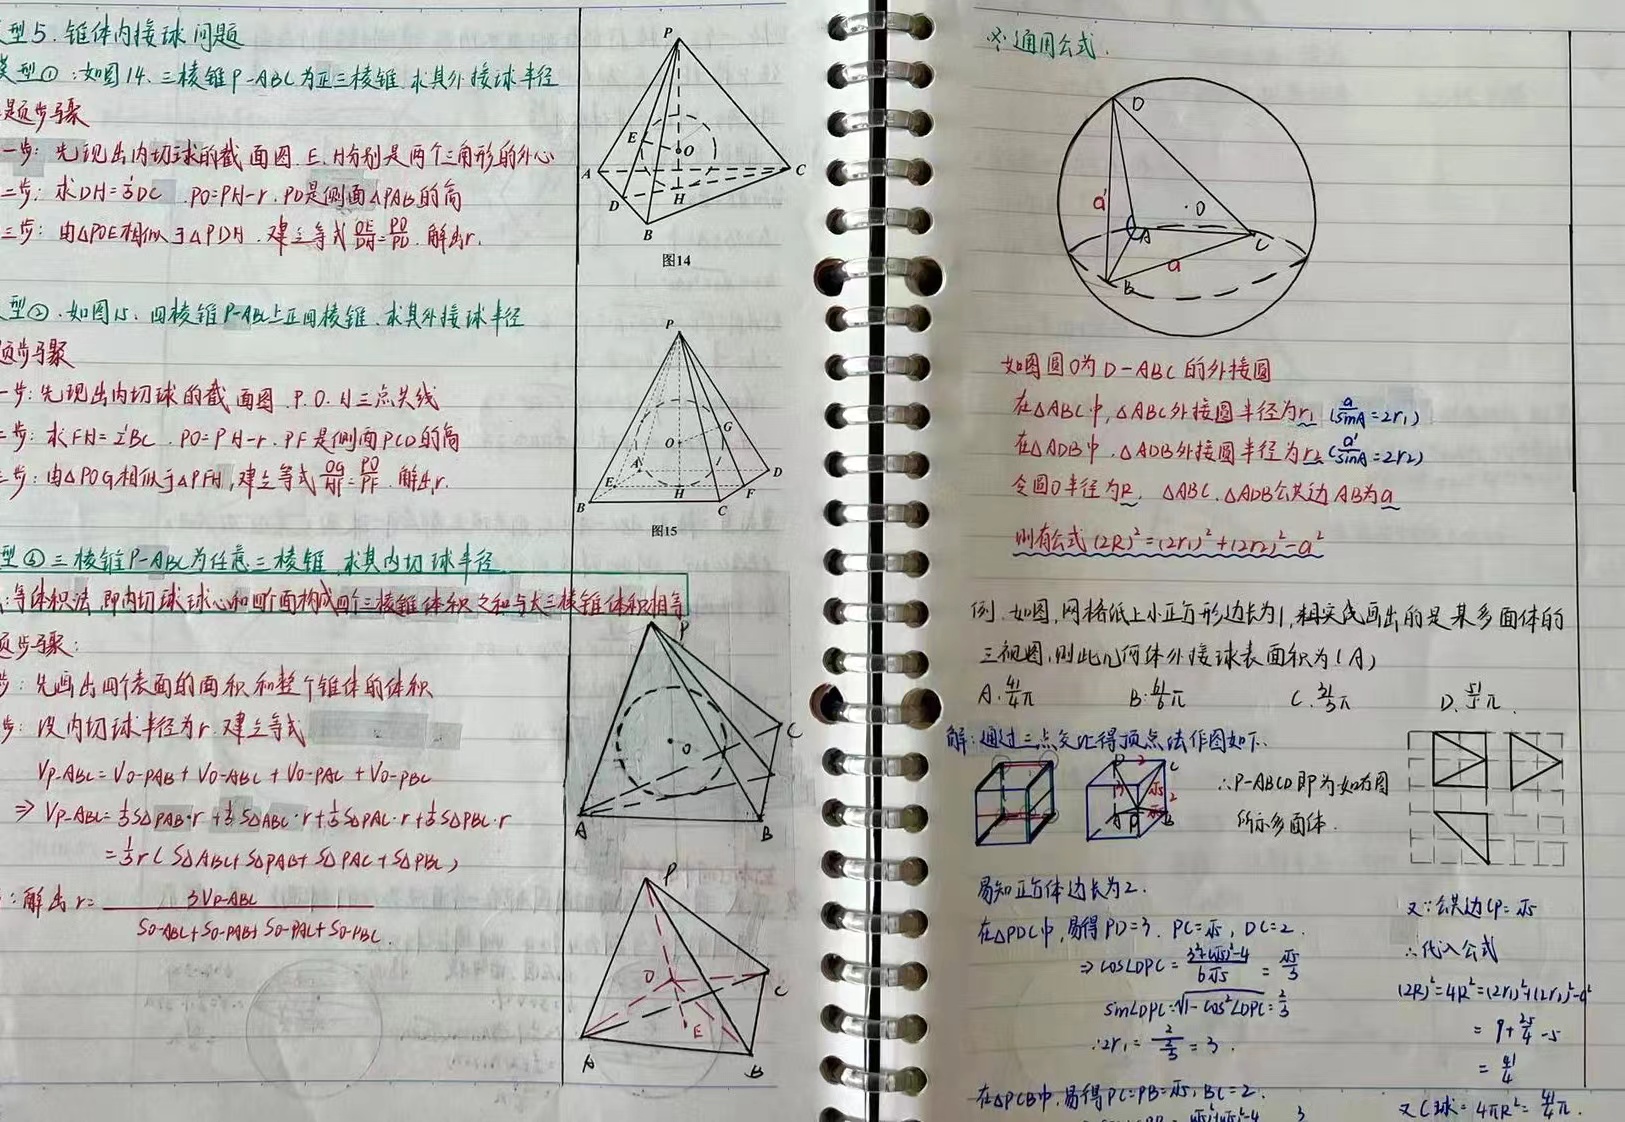 型5.锥体内接球问题
型①:如图14.三棱锥P-ABC为正三棱锥.求其外接球半径
题步骤
一步:先现出内切球的截面图.E.H分别是两个三角形的外心
二步:求DH=⅓DC.PO=PH-r.PD是侧面△PAB的高
三步:由△POE相似于△PDH.建立等式OE/DH=PO/PD.解出r.
P
E
O
A
C
D
H
B
图14
型②.如图15.四棱锥P-ABC是正四棱锥.求其外接球半径
题步骤
一步:先现出内切球的截面图.P.O.H三点共线
步:求FH=½BC.PO=PH-r.PF是侧面PCD的高
步:由△POG相似于△PFH,建立等式OG/HF=PO/PF.解出r.
P
G
O
A
D
E
H
F
B
C
图15
型③三棱锥P-ABC为任意三棱锥.求其内切球半径
:等体积法,即内切球球心和四个面构成四个三棱锥体积之和与大三棱锥体积相等
步骤:
步:先画出四个表面的面积和整个锥体的体积
步:设内切球半径为r.建立等式
VP-ABC=VO-PAB+VO-ABC+VO-PAC+VO-PBC
⇒VP-ABC=⅓S△PAB·r+⅓S△ABC·r+⅓S△PAC·r+⅓S△PBC·r
=⅓r(S△ABC+S△PAB+S△PAC+S△PBC)
:解出r=3VP-ABC/(SO-ABC+SO-PAB+SO-PAC+SO-PBC)
P
C
O
A
B
P
O
C
E
A
B
※通用公式.
D
a'
O
A
C
a
B
如图圆O为D-ABC的外接圆
在△ABC中,△ABC外接圆半径为r₁(a/sinA=2r₁)
在△ADB中.△ADB外接圆半径为r₂(a'/sinA=2r₂)
令圆O半径为R.△ABC.△ADB公共边AB为a
则有公式(2R)²=(2r₁)²+(2r₂)²-a²
例.如图,网格纸上小正方形边长为1,粗实线画出的是某多面体的
三视图,则此几何体外接球表面积为(A)
A.41/4π B.41/6π C.31/3π
解:通过三点交汇得顶点法作图如下.
∴P-ABCD即为如右图
所示多面体.
易知正方体边长为2.
在△PDC中,易得PD=3.PC=√5,DC=2.
⇒cos∠DPC=(3²+(√5)²-4)/6√5=√5/3
sin∠DPC=√1-cos²∠DPC=2/3
∴2r₁=2/(2/3)=3.
在△PCB中,易得PC=PB=√5,BC=2.
又∵公共边CP=√5
∴代入公式
(2R)²=4R²=(2r₁)²+(2r₂)²-a²
=9+25/4-5
=41/4
又C球=4πR²=41/4π.